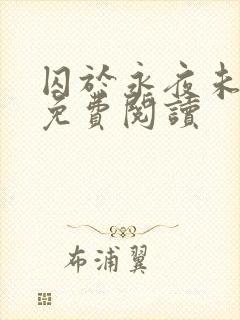 囚於永夜未
免費閱讀
布浦翼